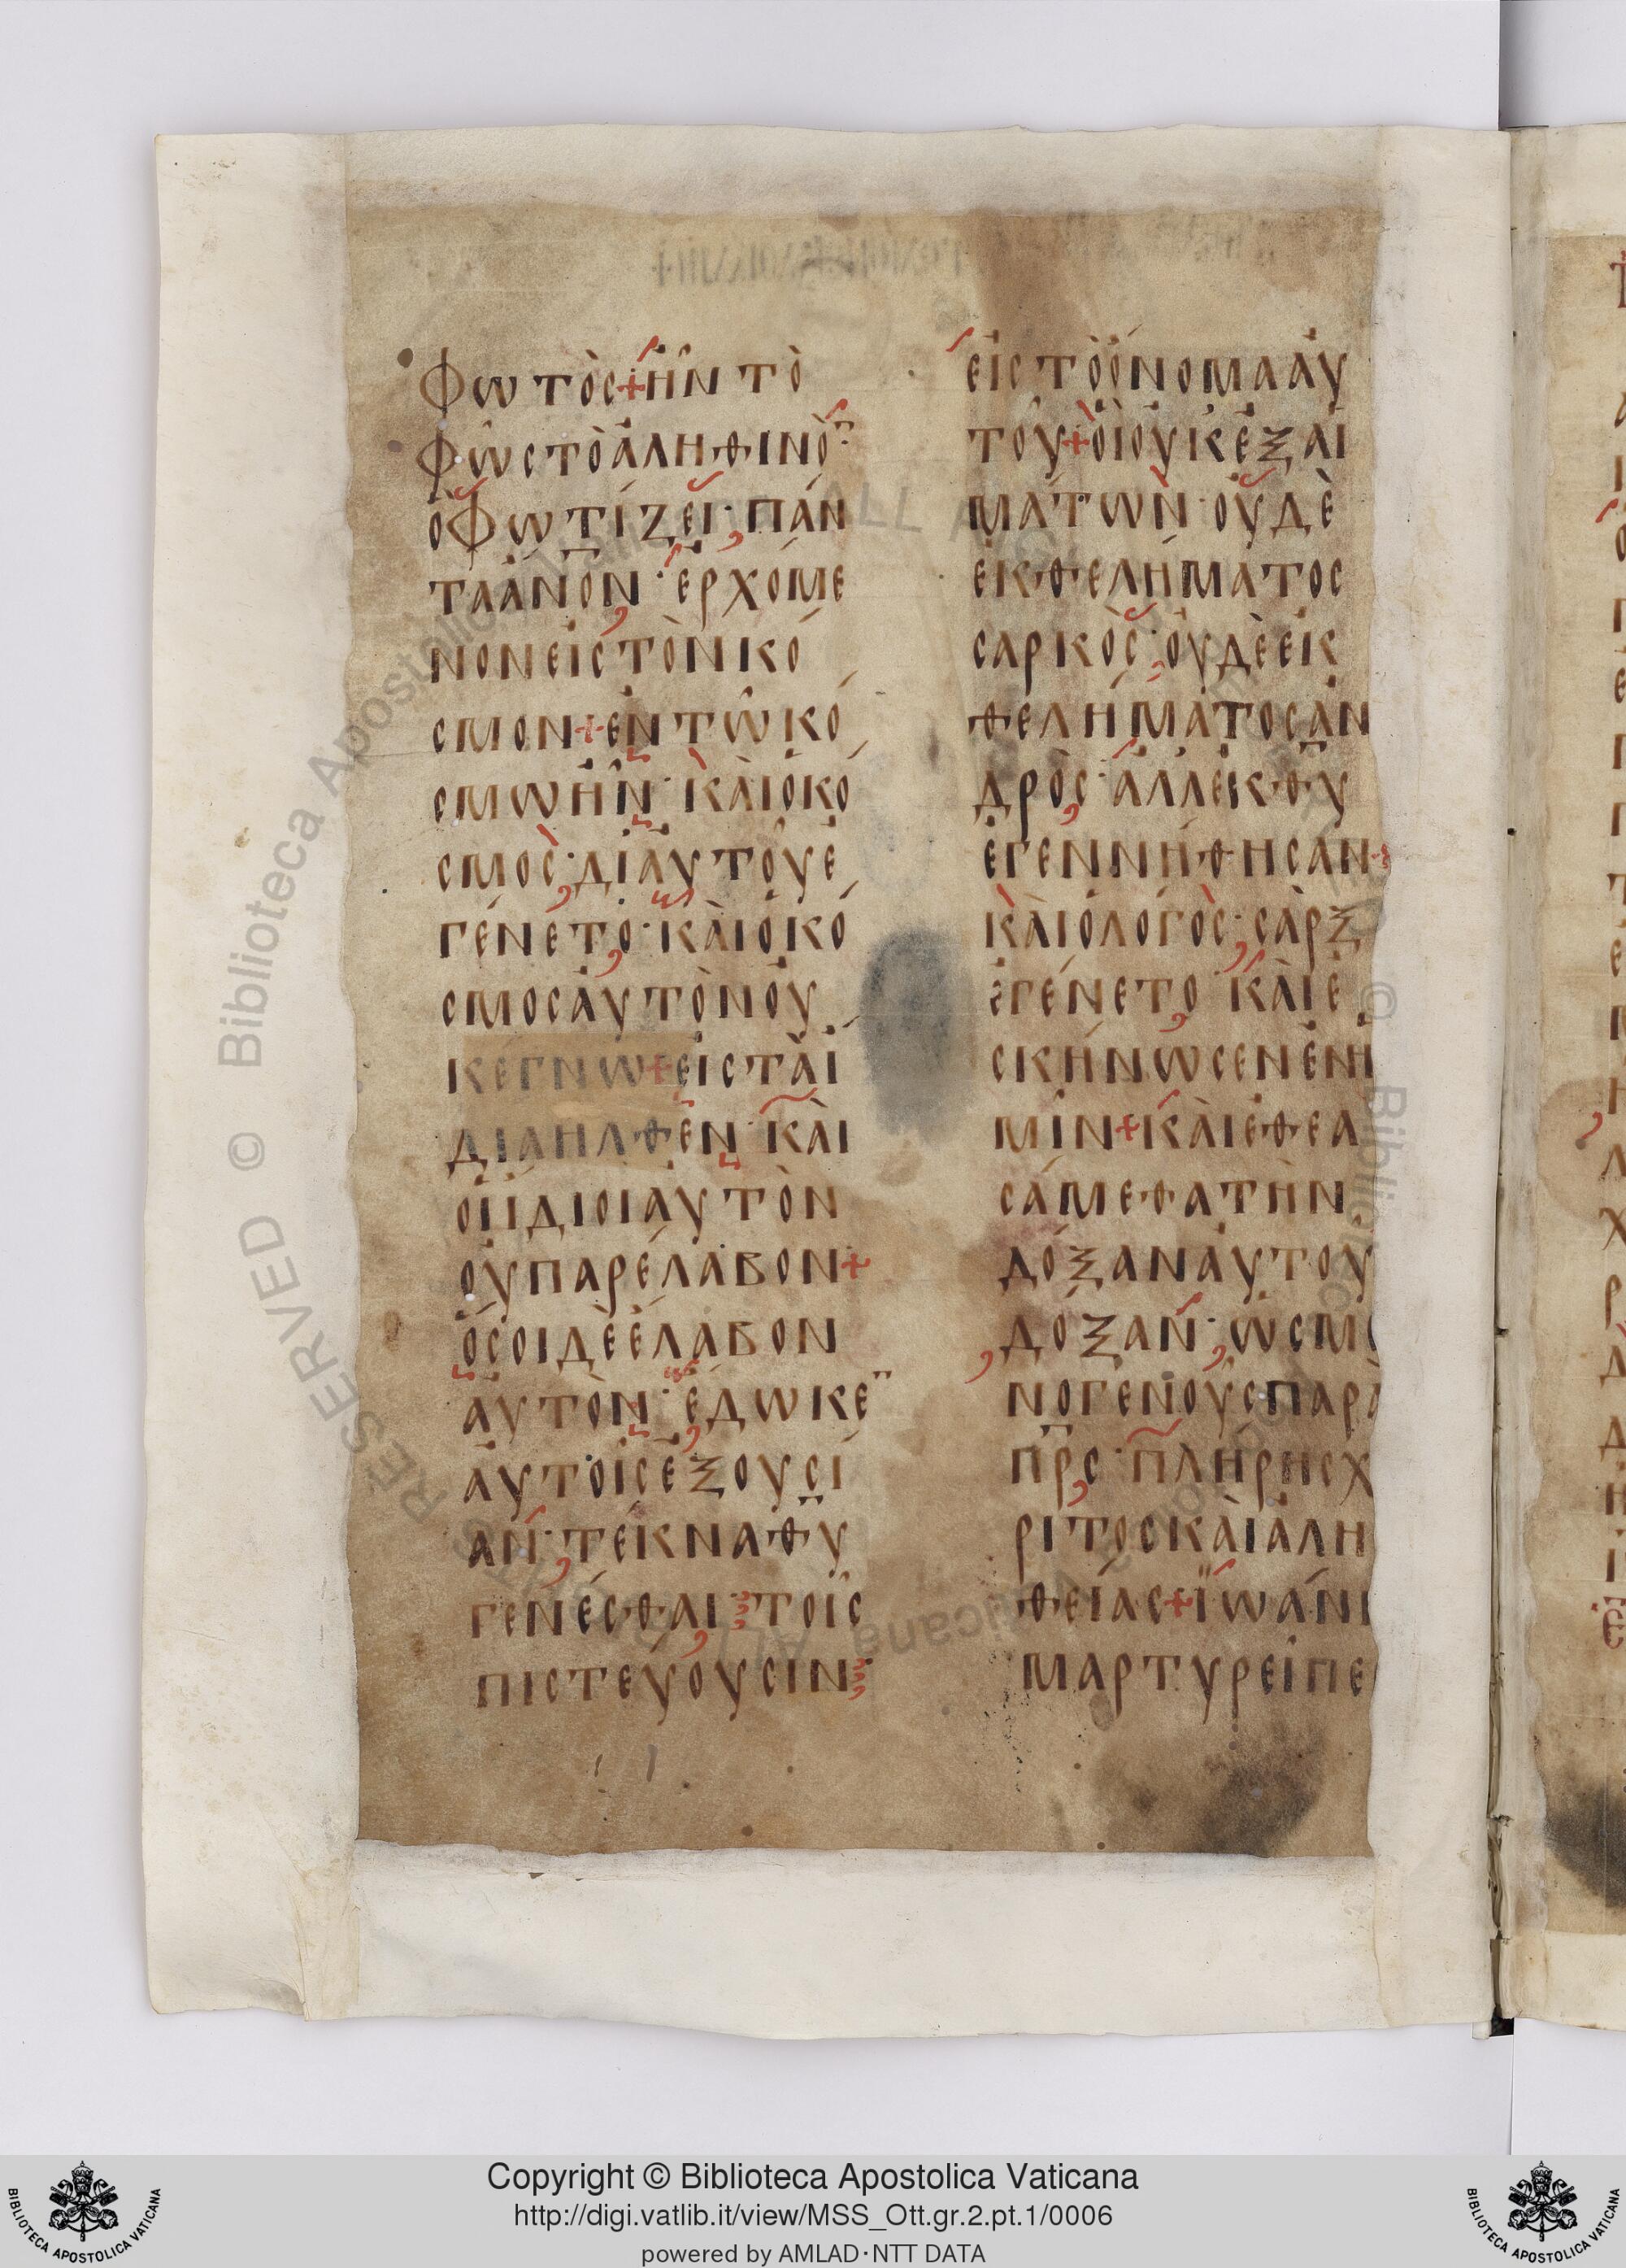 φωτὸς+ἦν τὸ
φῶς τὸ ἀληθινὸ
ὃ φωτίζει· πάν
τα ἄνον· ἐρχόμε
νον εἰς τὸν κό
σμον+ἐν τῶ κό
σμω ἦν· κὰι ὁ κό
σμος· δι ἀυτοῦ ἐ
γένετο· κὰι ὁ κό
σμος ἀυτὸν ὀυ
κ ἔγνω+εἰς τὰ ι
δια ηλθεν· κὰι
ὁι ίδιοι ἀυτὸν
ὀυ παρέλαβον+
ὅσοι δὲ ἔλαβον
ἀυτὸν· ἔδωκε
ἀυτοῖς ἐξουσί
αν· τέκνα θυ
γενέσθαι· τοῖς
πιστεύουσιν
εἰς τὸ ὄνομα ἀυ
τοῦ+ὁι ὀυκ ἐξ αἱ
μάτων· ὀυδὲ
ἐκ θελήματος
σαρκὸς· ὀυδὲ ἐκ
θελήματος ἀν
δρὸς· ἀλλ ἐκ θυ
ἐγεννήθησαν+
κὰι ὁ λόγὸς· σὰρξ
ἐγένετο· κὰι ἐ
σκήνωσεν ἐν ἡ
μῖν+κὰι ἐθεα
σάμεθα τὴν
δόξαν ἀυτοῦ
δόξαν· ὡς μο
νογενοῦς παρὰ
πρς· πλήρης χ
ριτος κὰι ἀλη
θείας+ϊωάνν
μαρτυρεῖ πε
Copyright © Biblioteca Apostolica Vaticana
http://digi.vatlib.it/view/MSS_Ott.gr.2.pt.1/0006
powered by AMLAD·NTT DATA
BIBLIOTECA APOSTOLICA VATICANA
BIBLIOTECA APOSTOLICA VATICANA